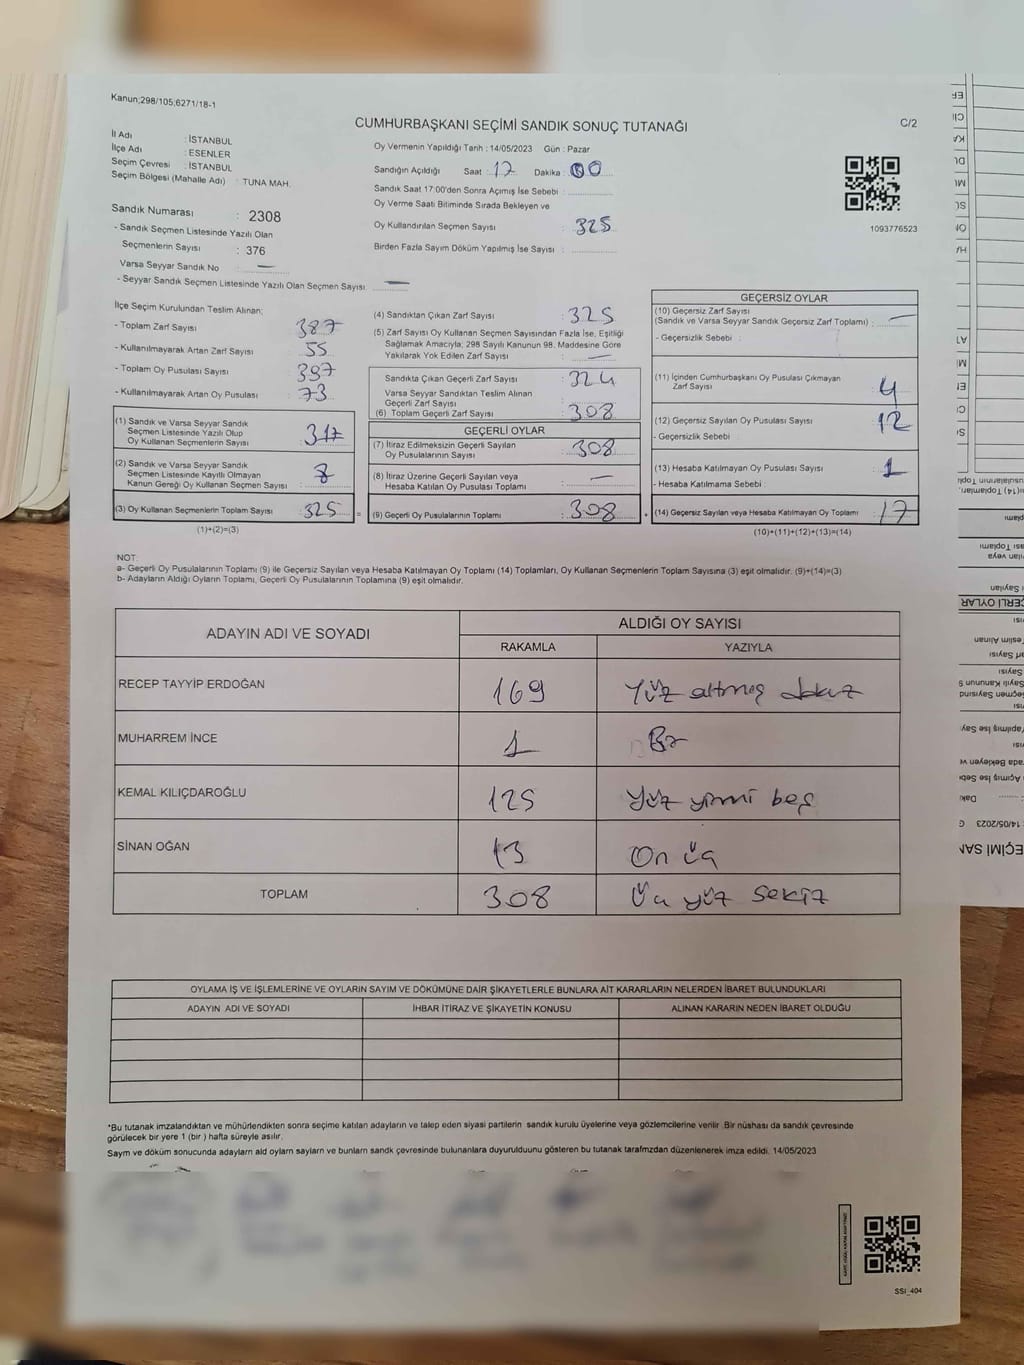 Kanun;298/105;6271/18-1
CUMHURBAŞKANI SEÇİMİ SANDIK SONUÇ TUTANAĞI
C/2
İl Adı : İSTANBUL
İlçe Adı : ESENLER
Seçim Çevresi : İSTANBUL
Seçim Bölgesi (Mahalle Adı) : TUNA MAH.
Oy Vermenin Yapıldığı Tarih : 14/05/2023 Gün : Pazar
Sandığın Açıldığı Saat : 17 Dakika : 00
Sandık Saat 17:00'den Sonra Açımış İse Sebebi :
Oy Verme Saati Bitiminde Sırada Bekleyen ve
Oy Kullandırılan Seçmen Sayısı : 325
Birden Fazla Sayım Döküm Yapılmış İse Sayısı :
1093776523
Sandık Numarası : 2308
- Sandık Seçmen Listesinde Yazılı Olan
Seçmenlerin Sayısı : 376
Varsa Seyyar Sandık No : —
- Seyyar Sandık Seçmen Listesinde Yazılı Olan Seçmen Sayısı : —
İlçe Seçim Kurulundan Teslim Alınan;
- Toplam Zarf Sayısı : 387
- Kullanılmayarak Artan Zarf Sayısı : 55
- Toplam Oy Pusulası Sayısı : 397
- Kullanılmayarak Artan Oy Pusulası : 73
(1) Sandık ve Varsa Seyyar Sandık
Seçmen Listesinde Yazılı Olup
Oy Kullanan Seçmenlerin Sayısı : 317
(2) Sandık ve Varsa Seyyar Sandık
Seçmen Listesinde Kayıtlı Olmayan
Kanun Gereği Oy Kullanan Seçmen Sayısı : 8
(3) Oy Kullanan Seçmenlerin Toplam Sayısı : 325 =
(1)+(2)=(3)
(4) Sandıktan Çıkan Zarf Sayısı : 325
(5) Zarf Sayısı Oy Kullanan Seçmen Sayısından Fazla İse, Eşitliği
Sağlamak Amacıyla; 298 Sayılı Kanunun 98. Maddesine Göre
Yakılarak Yok Edilen Zarf Sayısı : —
Sandıkta Çıkan Geçerli Zarf Sayısı : 324
Varsa Seyyar Sandıktan Teslim Alınan
Geçerli Zarf Sayısı :
(6) Toplam Geçerli Zarf Sayısı : 308
GEÇERLİ OYLAR
(7) İtiraz Edilmeksizin Geçerli Sayılan
Oy Pusulalarının Sayısı : 308
(8) İtiraz Üzerine Geçerli Sayılan veya
Hesaba Katılan Oy Pusulası Toplamı : —
(9) Geçerli Oy Pusulalarının Toplamı : 308 +
GEÇERSİZ OYLAR
(10) Geçersiz Zarf Sayısı
(Sandık ve Varsa Seyyar Sandık Geçersiz Zarf Toplamı) : —
- Geçersizlik Sebebi :
(11) İçinden Cumhurbaşkanı Oy Pusulası Çıkmayan
Zarf Sayısı : 4
(12) Geçersiz Sayılan Oy Pusulası Sayısı : 12
- Geçersizlik Sebebi :
(13) Hesaba Katılmayan Oy Pusulası Sayısı : 1
- Hesaba Katılmama Sebebi :
(14) Geçersiz Sayılan veya Hesaba Katılmayan Oy Toplamı : 17
(10)+(11)+(12)+(13)=(14)
NOT:
a- Geçerli Oy Pusulalarının Toplamı (9) ile Geçersiz Sayılan veya Hesaba Katılmayan Oy Toplamı (14) Toplamları, Oy Kullanan Seçmenlerin Toplam Sayısına (3) eşit olmalıdır. (9)+(14)=(3)
b- Adayların Aldığı Oyların Toplamı, Geçerli Oy Pusulalarının Toplamına (9) eşit olmalıdır.
ADAYIN ADI VE SOYADI
ALDIĞI OY SAYISI
RAKAMLA YAZIYLA
RECEP TAYYİP ERDOĞAN 169 Yüz altmış dokuz
MUHARREM İNCE 1 Bir
KEMAL KILIÇDAROĞLU 125 Yüz yirmi beş
SİNAN OĞAN 13 On üç
TOPLAM 308 Üç yüz sekiz
OYLAMA İŞ VE İŞLEMLERİNE VE OYLARIN SAYIM VE DÖKÜMÜNE DAİR ŞİKAYETLERLE BUNLARA AİT KARARLARIN NELERDEN İBARET BULUNDUKLARI
ADAYIN ADI VE SOYADI İHBAR İTİRAZ VE ŞİKAYETİN KONUSU ALINAN KARARIN NEDEN İBARET OLDUĞU
*Bu tutanak imzalandıktan ve mühürlendikten sonra seçime katılan adayların ve talep eden siyasi partilerin sandık kurulu üyelerine veya gözlemcilerine verilir .Bir nüshası da sandık çevresinde
görülecek bir yere 1 (bir ) hafta süreyle asılır.
Sayım ve döküm sonucunda adayların ald oyların sayları ve bunların sandk çevresinde bulunanlara duyurulduunu gösteren bu tutanak tarafmzdan düzenlenerek imza edildi. 14/05/2023
SSİ_404